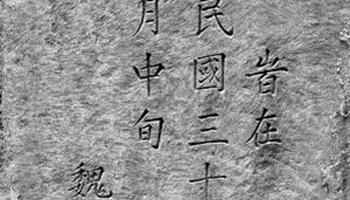 旹在
民國三十
月中旬
魏